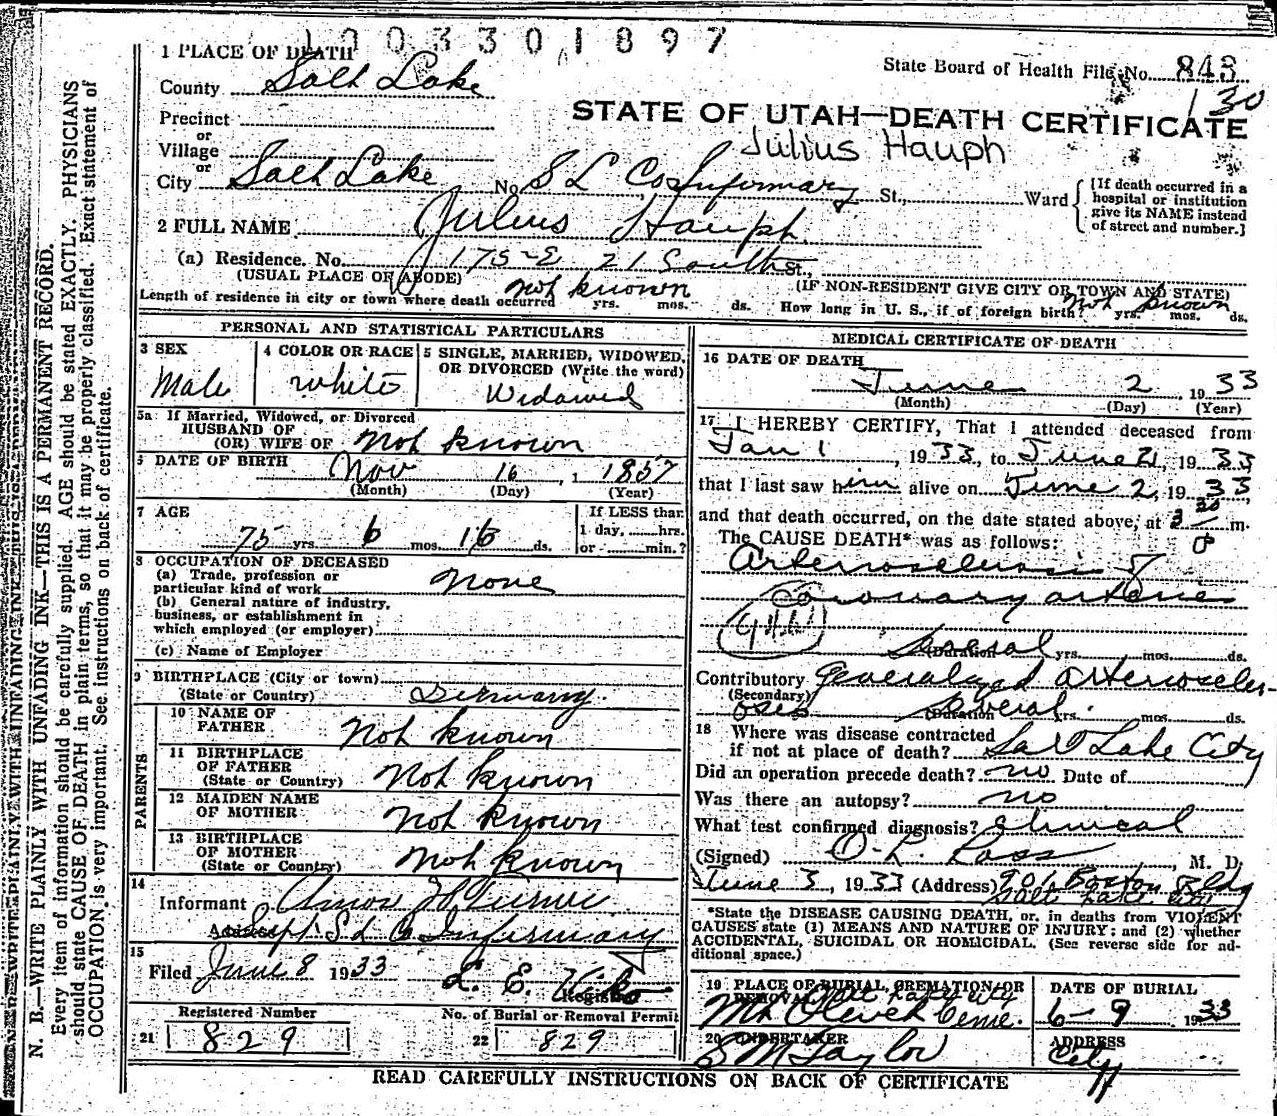 1003301897
1 PLACE OF DEATH
State Board of Health File No. 843
County Salt Lake
130
Precinct
STATE OF UTAH—DEATH CERTIFICATE
or
Julius Hauph
Village
or
City Salt Lake No. S L Co Infirmary St., Ward
[If death occurred in a
hospital or institution
give its NAME instead
of street and number.]
2 FULL NAME Julius Hauph
(a) Residence. No. 175-E 21 South St.,
(USUAL PLACE OF ABODE)
(IF NON-RESIDENT GIVE CITY OR TOWN AND STATE)
Length of residence in city or town where death occurred not known yrs. mos. ds. How long in U. S., if of foreign birth? not known yrs. mos. ds.
PERSONAL AND STATISTICAL PARTICULARS
3 SEX
Male
4 COLOR OR RACE
White
5 SINGLE, MARRIED, WIDOWED,
OR DIVORCED (Write the word)
Widowed
5a If Married, Widowed, or Divorced
HUSBAND OF
(OR) WIFE OF not known
6 DATE OF BIRTH Nov 16, 1857
(Month) (Day) (Year)
7 AGE
75 yrs. 6 mos. 16 ds.
If LESS than
1 day, hrs.
or min.?
8 OCCUPATION OF DECEASED
(a) Trade, profession or
particular kind of work none
(b) General nature of industry,
business, or establishment in
which employed (or employer)
(c) Name of Employer
9 BIRTHPLACE (City or town)
(State or Country) Germany
PARENTS
10 NAME OF
FATHER Not known
11 BIRTHPLACE
OF FATHER Not known
(State or Country)
12 MAIDEN NAME
OF MOTHER Not known
13 BIRTHPLACE
OF MOTHER Not known
(State or Country)
14
Informant Amos H
Address Supt S L Co Infirmary
15
Filed June 8 1933 L. E.
Registrar
Registered Number
21 829
No. of Burial or Removal Permit
22 829
MEDICAL CERTIFICATE OF DEATH
16 DATE OF DEATH
June 2, 1933
(Month) (Day) (Year)
17 I HEREBY CERTIFY, That I attended deceased from
Jan 1, 1933, to June 21, 1933
that I last saw him alive on June 2, 1933
and that death occurred, on the date stated above, at 3 20 P m.
The CAUSE DEATH* was as follows:
Arteriosclerosis of
Coronary arteries
several
(Duration) yrs. mos. ds.
Contributory generalized arterioscler-
(Secondary)
osis several
(Duration) yrs. mos. ds.
18 Where was disease contracted
if not at place of death? Salt Lake City
Did an operation precede death? no Date of
Was there an autopsy? no
What test confirmed diagnosis? Clinical
(Signed) O. L. Ross, M. D.
June 3, 1933 (Address) 906 Boston Bldg
Salt Lake City
*State the DISEASE CAUSING DEATH, or, in deaths from VIOLENT
CAUSES state (1) MEANS AND NATURE OF INJURY; and (2) whether
ACCIDENTAL, SUICIDAL OR HOMICIDAL. (See reverse side for ad-
ditional space.)
19 PLACE OF BURIAL, CREMATION OR
REMOVAL Salt Lake City
Mt Olivet Ceme.
DATE OF BURIAL
6-9 1933
20 UNDERTAKER
S M Taylor
ADDRESS
City
READ CAREFULLY INSTRUCTIONS ON BACK OF CERTIFICATE
N. B.—WRITE PLAINLY WITH UNFADING INK—THIS IS A PERMANENT RECORD.
Every item of information should be carefully supplied. AGE should be stated EXACTLY. PHYSICIANS
should state CAUSE OF DEATH in plain terms, so that it may be properly classified. Exact statement of
OCCUPATION is very important. See instructions on back of certificate.